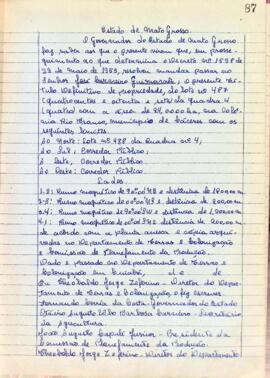 87
Estado de Mato Grosso.
O Governador do Estado de Mato Grosso
faz saber aos que o presente virem que, em prosse-
guimento ao que determina o Decreto nº 1598 de
22 de maio de 1953, resolveu mandar passar ao
Senhor José Guimarães, o presente Ti-
tulo Definitivo de propriedade, do lote nº 487
(quatrocentos e oitenta e sete) da Quadra 4
(quatro) com a área de 24,0000 ha, na Colo-
nia Rio Branco, municipio de Cáceres com os
seguintes limites:
Ao Norte: Lote nº 488 da Quadra nº 4;
Ao Sul: Corredor Público;
A Leste: Corredor Público;
Ao Oeste: Corredor Público.
Lados
1-2: Rumo magnético de e distância de
2-3: Rumo magnético de e distância de
Rumo magnético de e distância de
4-1: Rumo magnético de e distância de
de acordo com a planta anexa e cópia arqui-
vadas no Departamento de Terras e Colonização
e Comissão de Planejamento da Produção.
Dado e passado no Departamento de Terras e
Colonização em Cuiabá, de de
Eu Theobaldo Jorge Zeforino - Diretor do Depar-
tamento de Terras e Colonização, o fiz escrever.
Fernando Corrêa da Costa - Governador do Estado
Augusto Barbosa - Secretário
da Agricultura.
João Augusto Capilé Junior - Presidente da
Comissão de Planejamento da Produção.
Theobaldo Jorge Zeforino - Diretor do Departamento